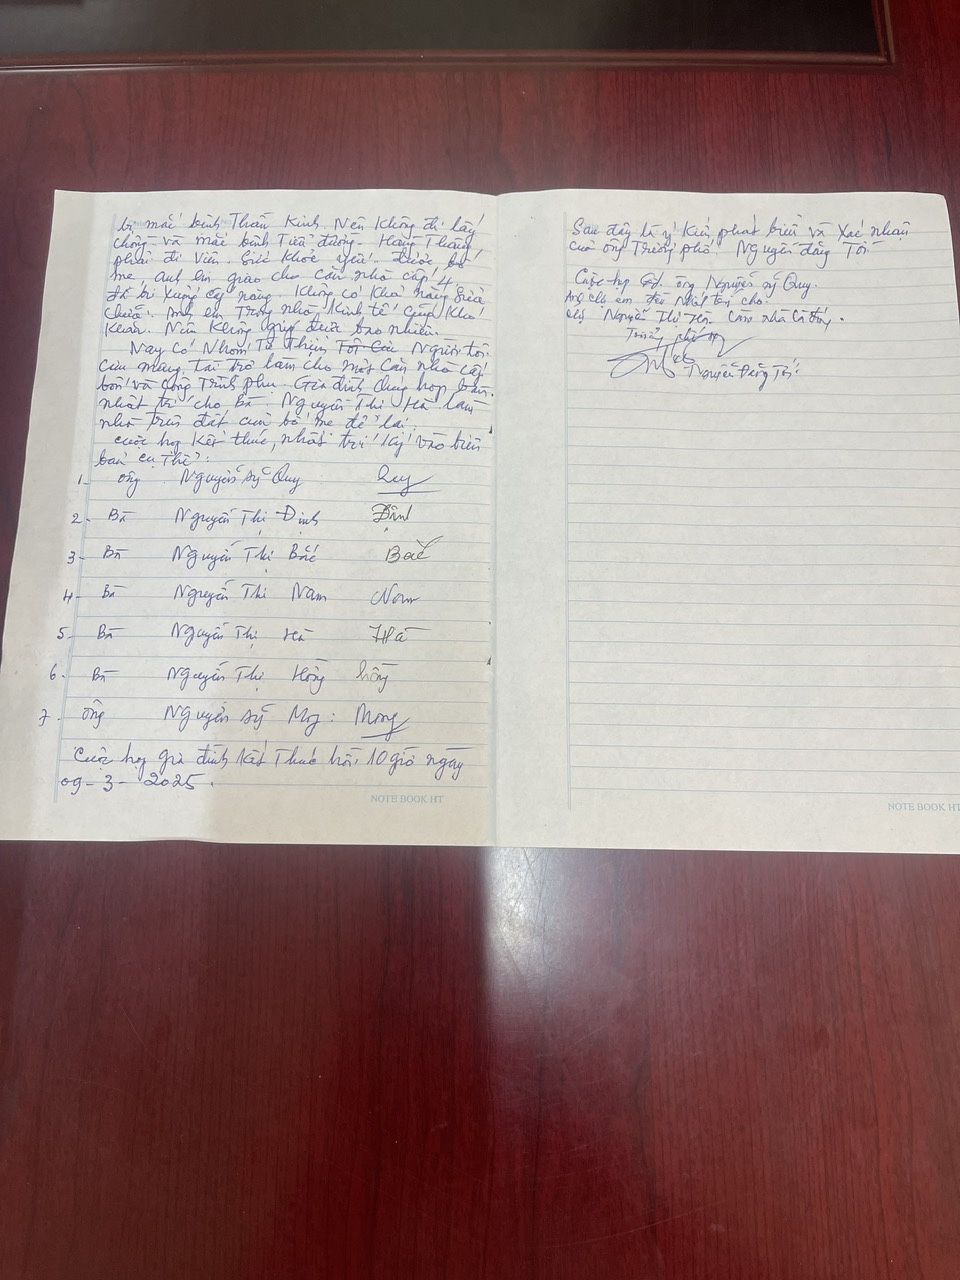 bị mắc bệnh Thần Kinh. Nên không đi lấy
chồng và mắc bệnh Tiểu đường. Hàng Tháng
phải đi viện. Sức khỏe yếu. được bố
mẹ anh em giao cho căn nhà cấp 4
đã bị xuống cấp nặng. Không có khả năng sửa
chữa. Anh em Trong nhà kinh tế cũng khó
khăn. Nên không giúp được bao nhiêu.
Nay có Nhóm Từ Thiện Người tôi
cưu mang, tài trợ làm cho một căn nhà cấp
bốn và công trình phụ. Gia đình chúng họp bàn
nhất trí cho Bà: Nguyễn Thị Hà làm
nhà trên đất của bố mẹ để lại.
Cuộc họp kết thúc, nhất trí ký vào biên
bản cụ thể:
1. ông Nguyễn Sỹ Quy Quy
2- Bà Nguyễn Thị Định Định
3- Bà Nguyễn Thị Bắc Bắc
4- Bà Nguyễn Thị Nam Nam
5- Bà Nguyễn Thị Hà Hà
6. Bà Nguyễn Thị Hồng hồng
7. ông Nguyễn Sỹ
Cuộc họp gia đình kết thúc hồi 10 giờ ngày
09-3-2025.
NOTE BOOK HT
Sau đây là ý kiến phát biểu và xác nhận
của ông Trưởng phố. Nguyễn đăng Tới
Cuộc họp Gđ. ông Nguyễn Sỹ Quy.
Anh chị em đều nhất trí cho
chị Nguyễn Thị Hà. làm nhà
Trưởng phố
Nguyễn Đăng Tới
NOTE BOOK HT